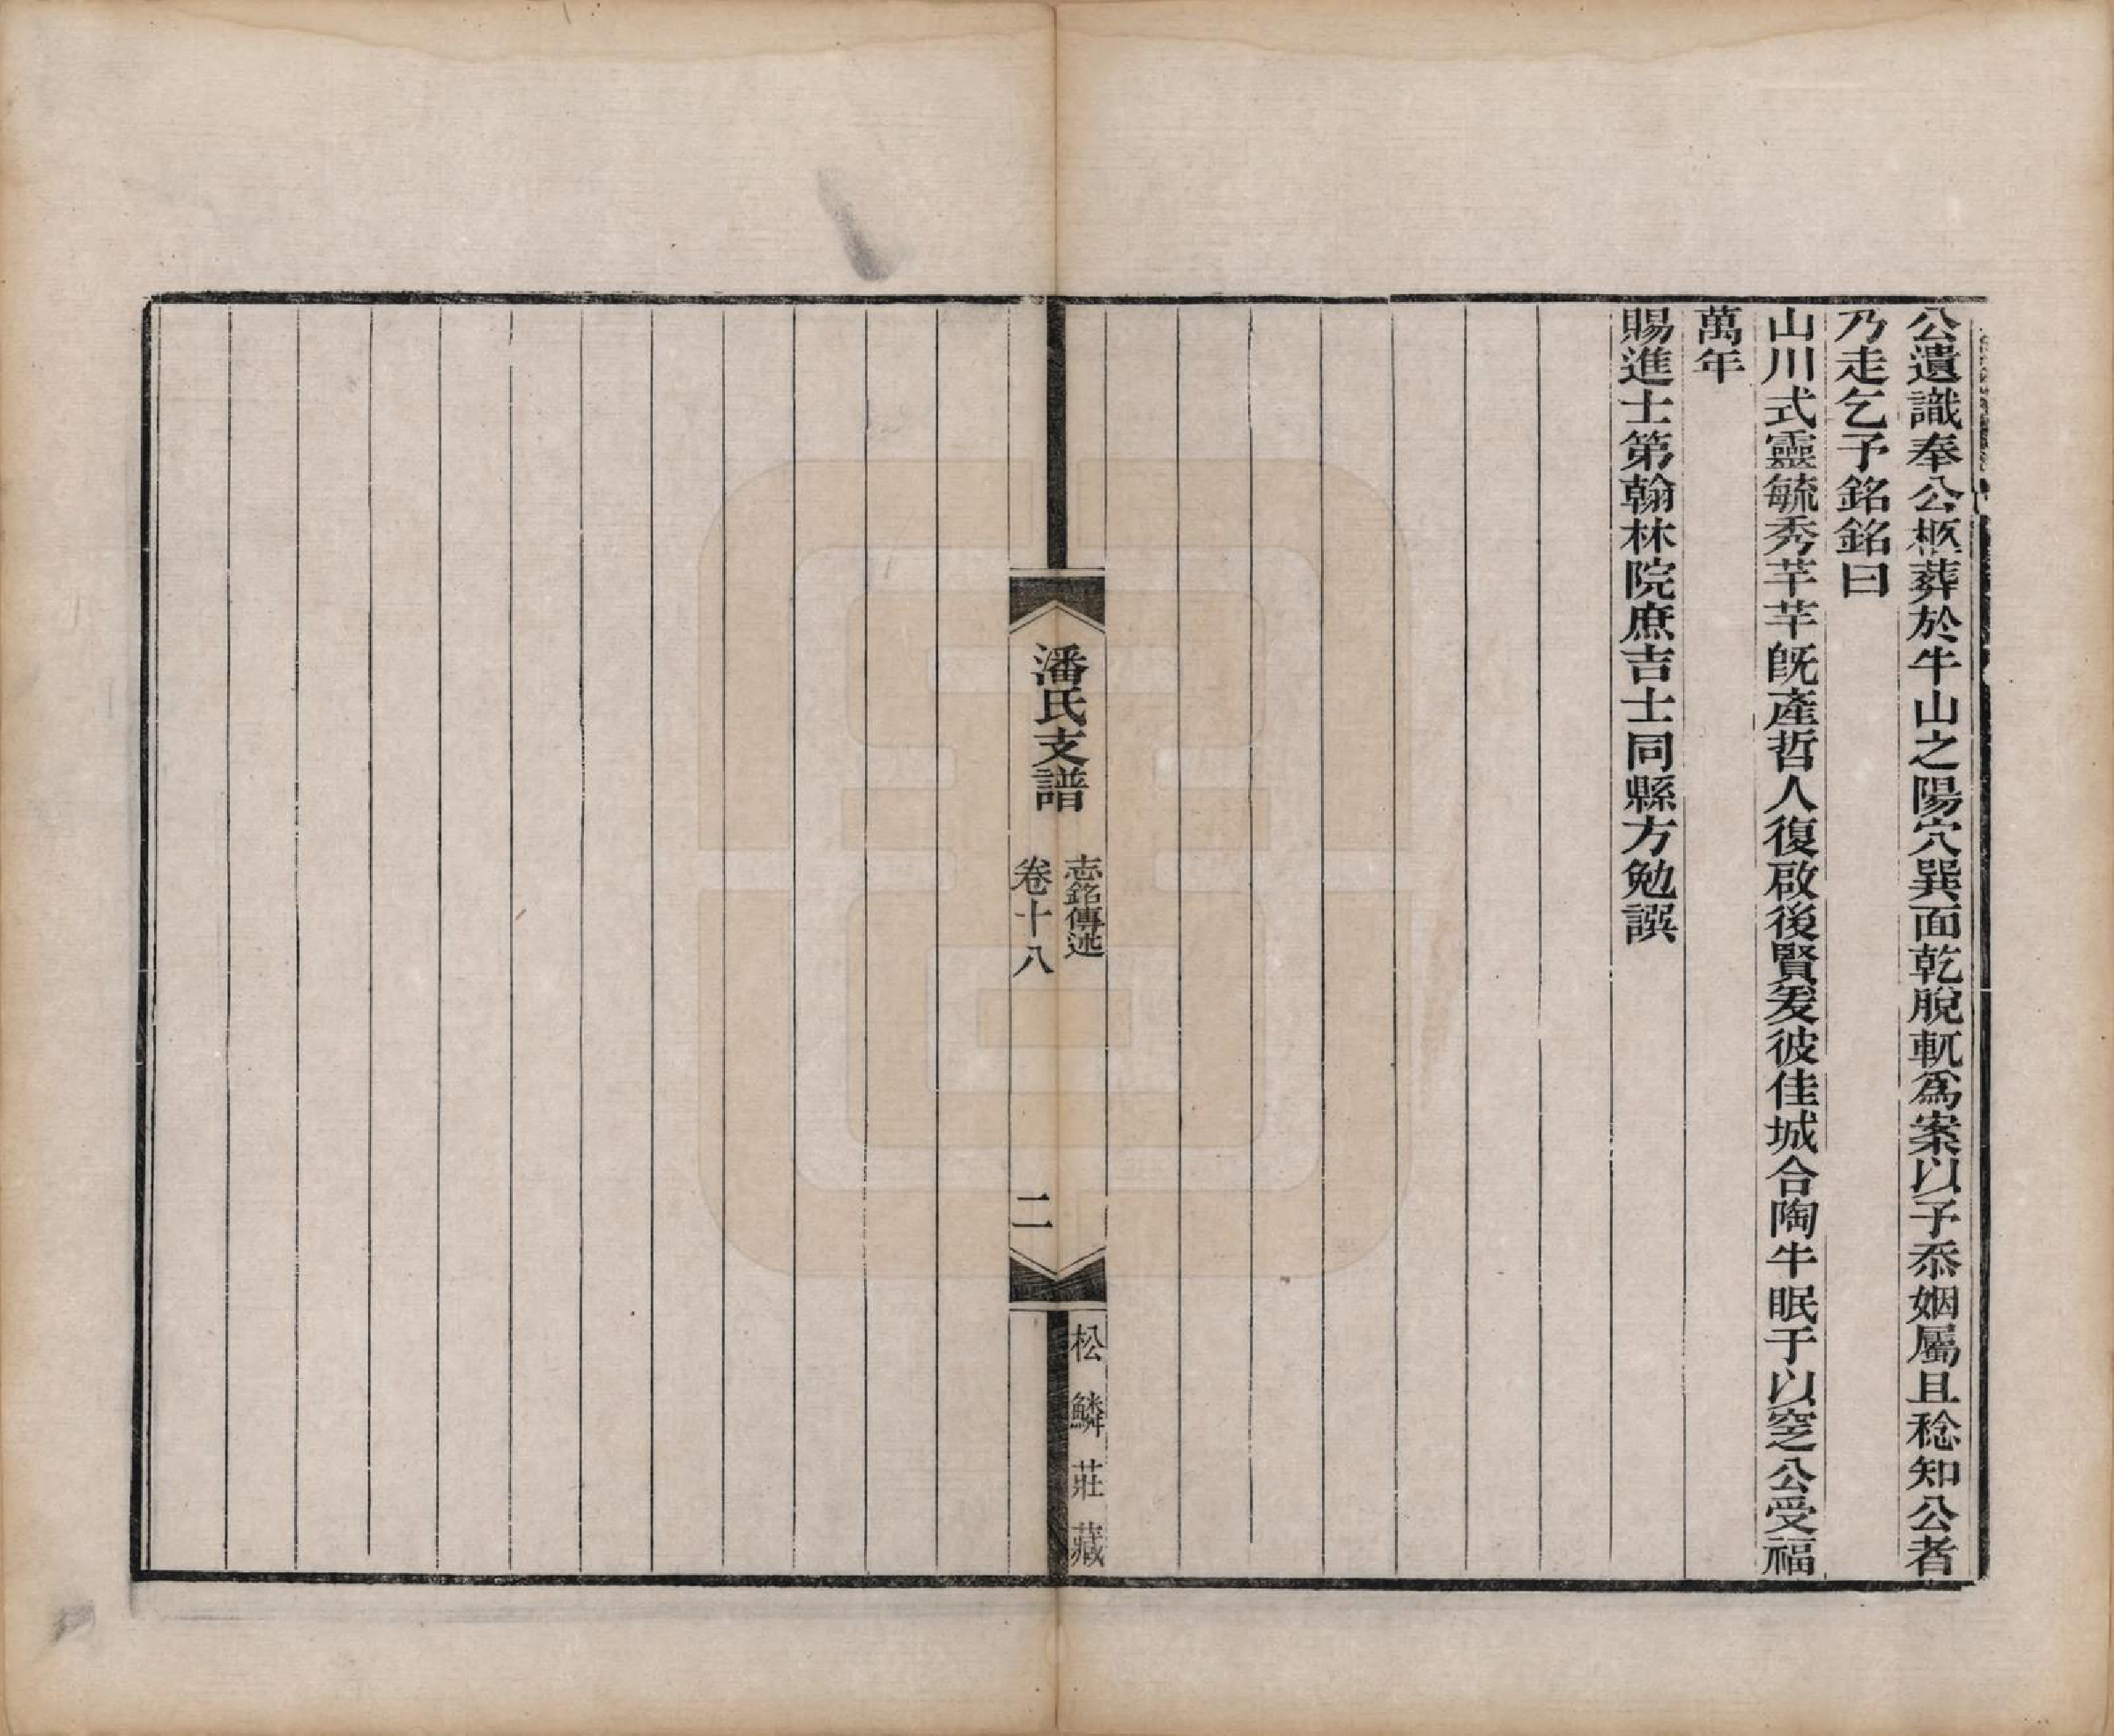 公遺識奉公柩葬於牛山之陽穴巽面乾脫軏爲案以予忝姻屬且稔知公者
乃走乞予銘銘曰
山川式靈毓秀芊芊旣產哲人復啟後賢爰彼佳城合陶牛眠于以窆公受福
萬年
賜進士第翰林院庶吉士同縣方勉譔
潘氏支譜
志銘傳述
卷十八
二
松鱗莊藏